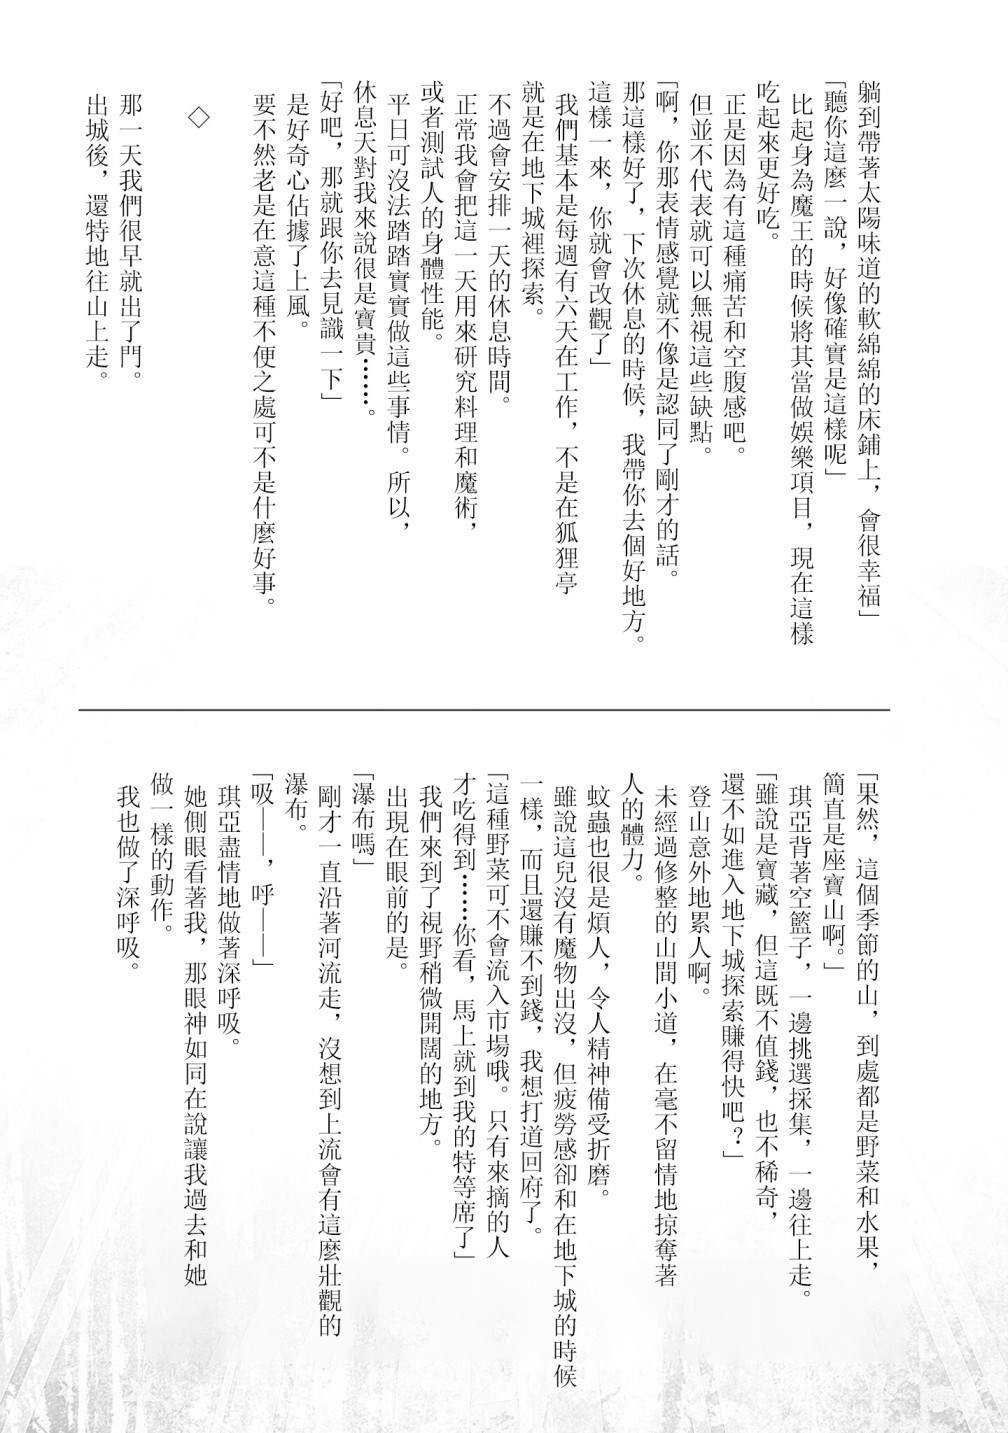 躺到帶著太陽味道的軟綿綿的床鋪上，會很幸福」
「聽你這麼一說，好像確實是這樣呢」
比起身為魔王的時候將其當做娛樂項目，現在這樣
吃起來更好吃。
正是因為有這種痛苦和空腹感吧。
但並不代表就可以無視這些缺點。
「啊，你那表情感覺就不像是認同了剛才的話。
那這樣好了，下次休息的時候，我帶你去個好地方。
這樣一來，你就會改觀了」
我們基本是每週有六天在工作，不是在狐狸亭
就是在地下城裡探索。
不過會安排一天的休息時間。
正常我會把這一天用來研究料理和魔術，
或者測試人的身體性能。
平日可沒法踏踏實實做這些事情。所以，
休息天對我來說很是寶貴……。
「好吧，那就跟你去見識一下」
是好奇心佔據了上風。
要不然老是在意這種不便之處可不是什麼好事。
◇
那一天我們很早就出了門。
出城後，還特地往山上走。
「果然，這個季節的山，到處都是野菜和水果，
簡直是座寶山啊。」
琪亞背著空籃子，一邊挑選採集，一邊往上走。
「雖說是寶藏，但這既不值錢，也不稀奇，
還不如進入地下城探索賺得快吧？」
登山意外地累人啊。
未經過修整的山間小道，在毫不留情地掠奪著
人的體力。
蚊蟲也很是煩人，令人精神備受折磨。
雖說這兒沒有魔物出沒，但疲勞感卻和在地下城的時候
一樣，而且還賺不到錢，我想打道回府了。
「這種野菜可不會流入市場哦。只有來摘的人
才吃得到……你看，馬上就到我的特等席了」
我們來到了視野稍微開闊的地方。
出現在眼前的是。
「瀑布嗎」
剛才一直沿著河流走，沒想到上流會有這麼壯觀的
瀑布。
「吸——，呼——」
琪亞盡情地做著深呼吸。
她側眼看著我，那眼神如同在說讓我過去和她
做一樣的動作。
我也做了深呼吸。